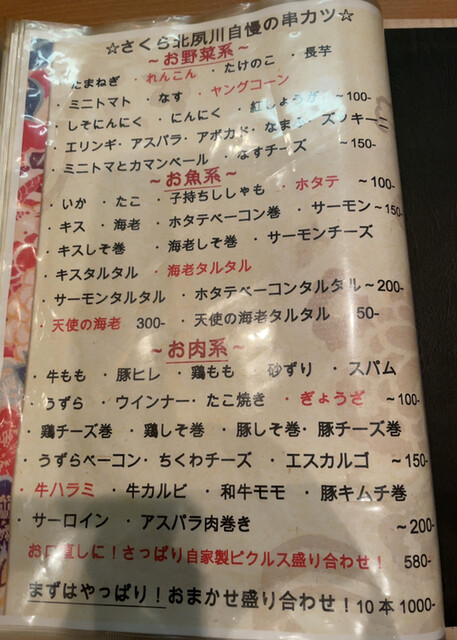 ☆さくら北夙川自慢の串カツ☆
～お野菜系～
・たまねぎ ・れんこん ・たけのこ ・長芋
・ミニトマト ・なす ・ヤングコーン
・しそにんにく ・にんにく ・紅しょうが ～100-
・エリンギ・アスパラ・アボカド・なま チーズッキーニ
・ミニトマトとカマンベール ・なすチーズ ～150-
～お魚系～
・いか ・たこ ・子持ちししゃも ・ホタテ ～100-
・キス ・海老 ・ホタテベーコン巻 ・サーモン～150-
・キスしそ巻 ・海老しそ巻 ・サーモンチーズ
・キスタルタル ・海老タルタル
・サーモンタルタル ・ホタテベーコンタルタル～200-
・天使の海老 300- ・天使の海老タルタル 50-
～お肉系～
・牛もも ・豚ヒレ ・鶏もも ・砂ずり ・スパム
・うずら ・ウインナー・たこ焼き ・ぎょうざ ～100-
・鶏チーズ巻 ・鶏しそ巻 ・豚しそ巻・豚チーズ巻
・うずらベーコン・ちくわチーズ ・エスカルゴ ～150-
・牛ハラミ ・牛カルビ ・和牛モモ ・豚キムチ巻
・サーロイン ・アスパラ肉巻き ～200-
お口直しに！さっぱり自家製ピクルス盛り合わせ！ 580-
まずはやっぱり！おまかせ盛り合わせ！10本1000-